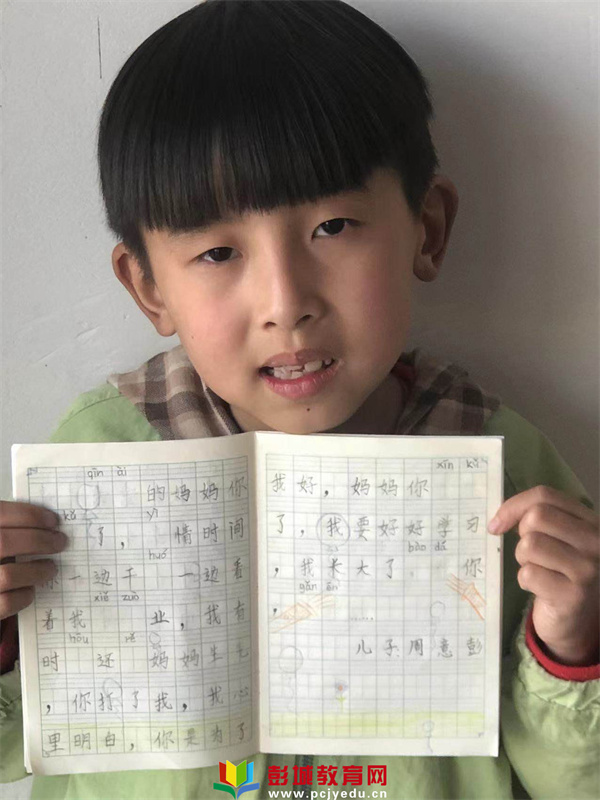 qīn ài
的妈妈你
kǔ yì
了，情时间
huó
你一边干 一边看
xiě zuò
着我 业，我有
hòu
时 还 妈妈生气
，你打了我，我心
里明白，你是为了
xīn kǔ
我好，妈妈你
了，我要好好学习
bào dá
，我长大了 你
gǎn ēn
。……
儿子：周意彭
彭城教育网
www.pcjyedu.cn